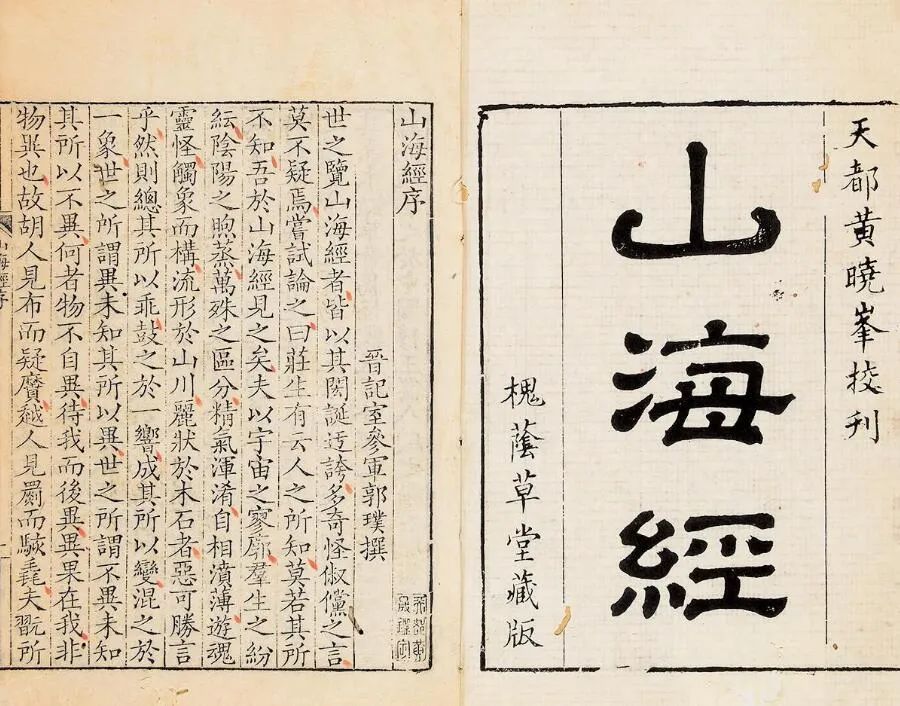 天都黃曉峯挍刊
山海經
槐蔭草堂藏版
山海經序
晉記室參軍郭璞撰
世之覽山海經者皆以其閎誕迃誇多奇怪俶儻之言
莫不疑焉嘗試論之曰莊生有云人之所知莫若其所
不知吾於山海經見之矣夫以宇宙之寥廓羣生之紛
紜陰陽之喣蒸萬殊之區分精氣渾淆自相濆薄遊魂
靈怪觸象而構流形於山川麗狀於木石者惡可勝言
乎然則總其所以乖鼓之於一響成其所以變混之於
一象世之所謂異未知其所以異世之所謂不異未知
其所以不異何者物不自異待我而後異異果在我非
物異也故胡人見布而疑黂越人見罽而駭毳夫翫所
山海經序